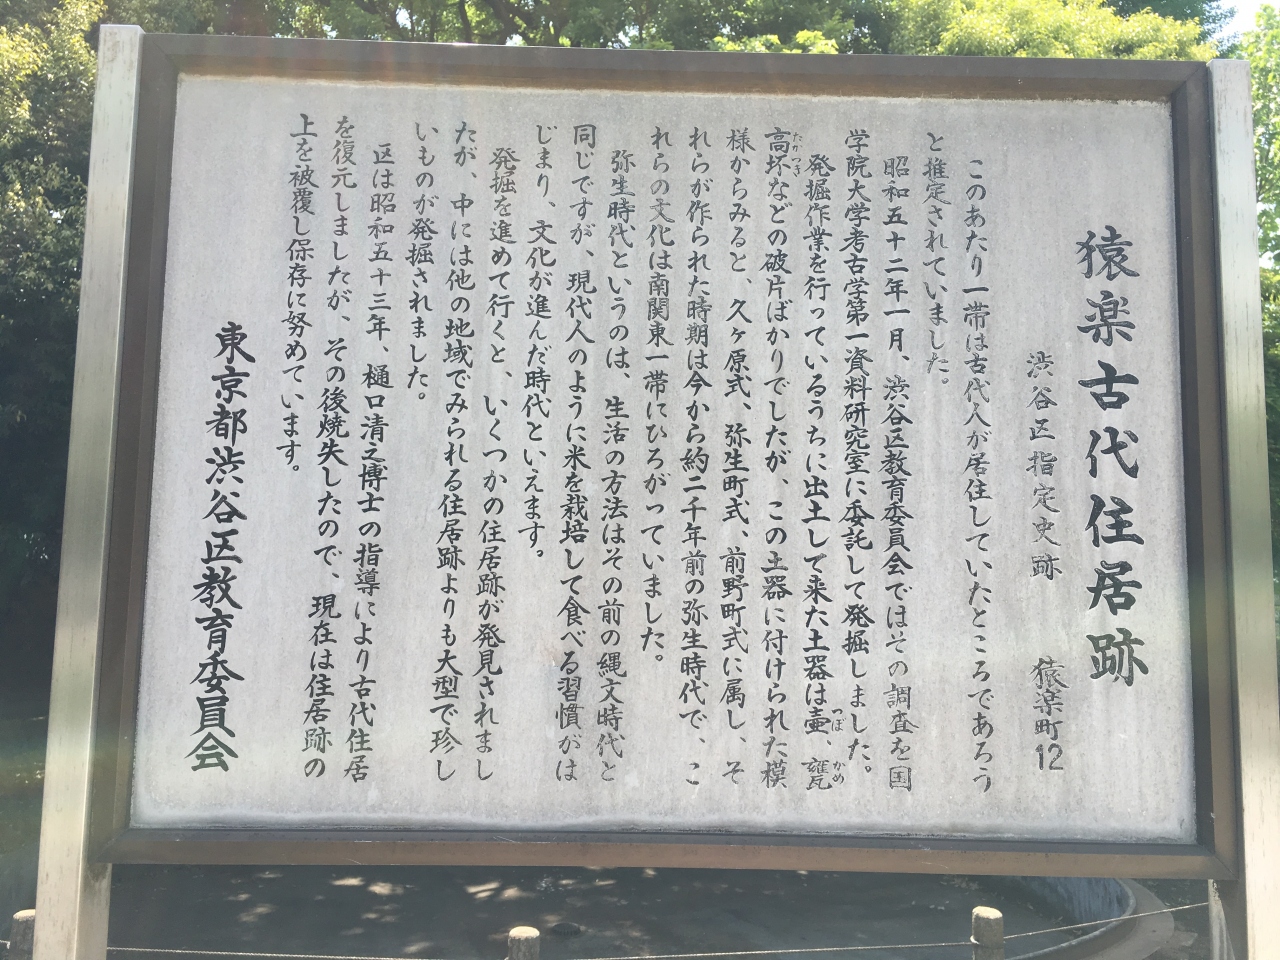 猿楽古代住居跡
渋谷区指定史跡　猿楽町12
このあたり一帯は古代人が居住していたところであろう
と推定されていました。
昭和五十二年一月、渋谷区教育委員会ではその調査を国
学院大学考古学第一資料研究室に委託して発掘しました。
発掘作業を行っているうちに出土して来た土器は壷、甕
つぼ　かめ
高坏などの破片ばかりでしたが、この土器に付けられた模
たかつき
様からみると、久ヶ原式、弥生町式、前野町式に属し、そ
れらが作られた時期は今から約二千年前の弥生時代で、こ
れらの文化は南関東一帯にひろがっていました。
弥生時代というのは、生活の方法はその前の縄文時代と
同じですが、現代人のように米を栽培して食べる習慣がは
じまり、文化が進んだ時代といえます。
発掘を進めて行くと、いくつかの住居跡が発見されまし
たが、中には他の地域でみられる住居跡よりも大型で珍し
いものが発掘されました。
区は昭和五十三年、樋口清之博士の指導により古代住居
を復元しましたが、その後焼失したので、現在は住居跡の
上を被覆し保存に努めています。
東京都渋谷区教育委員会